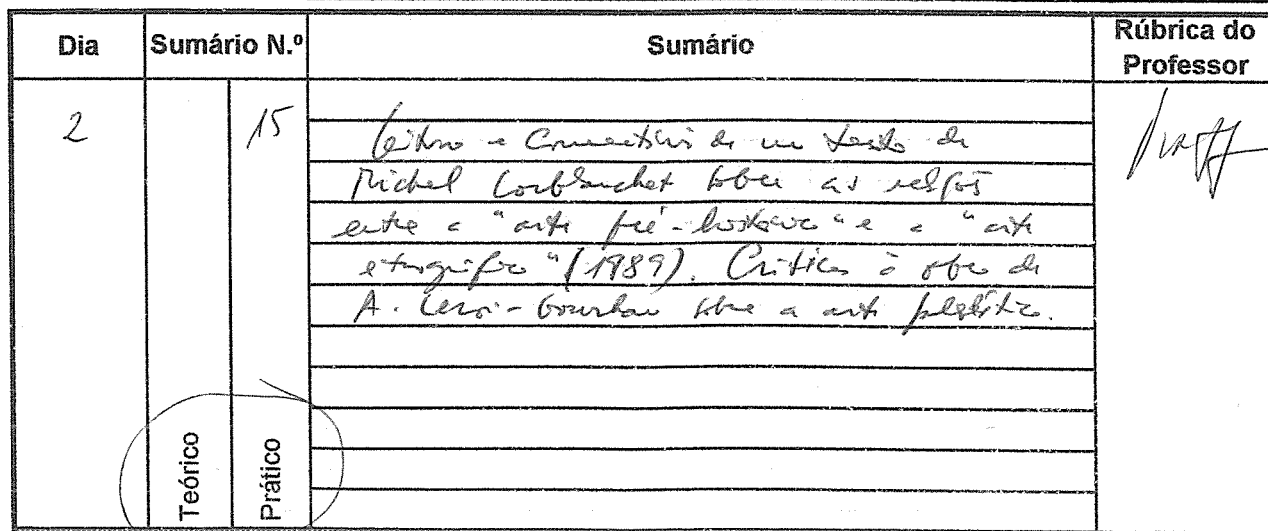 Dia Sumário N.º Sumário Rúbrica do Professor
2 15
Leitura e Comentário de um texto de
Michel Lorblanchet sobre as relações
entre a "arte pré-histórica" e a "arte
etnográfica" (1989). Críticas à obra de
A. Leroi-Gourhan sobre a arte paleolítica.
Teórico
Prático